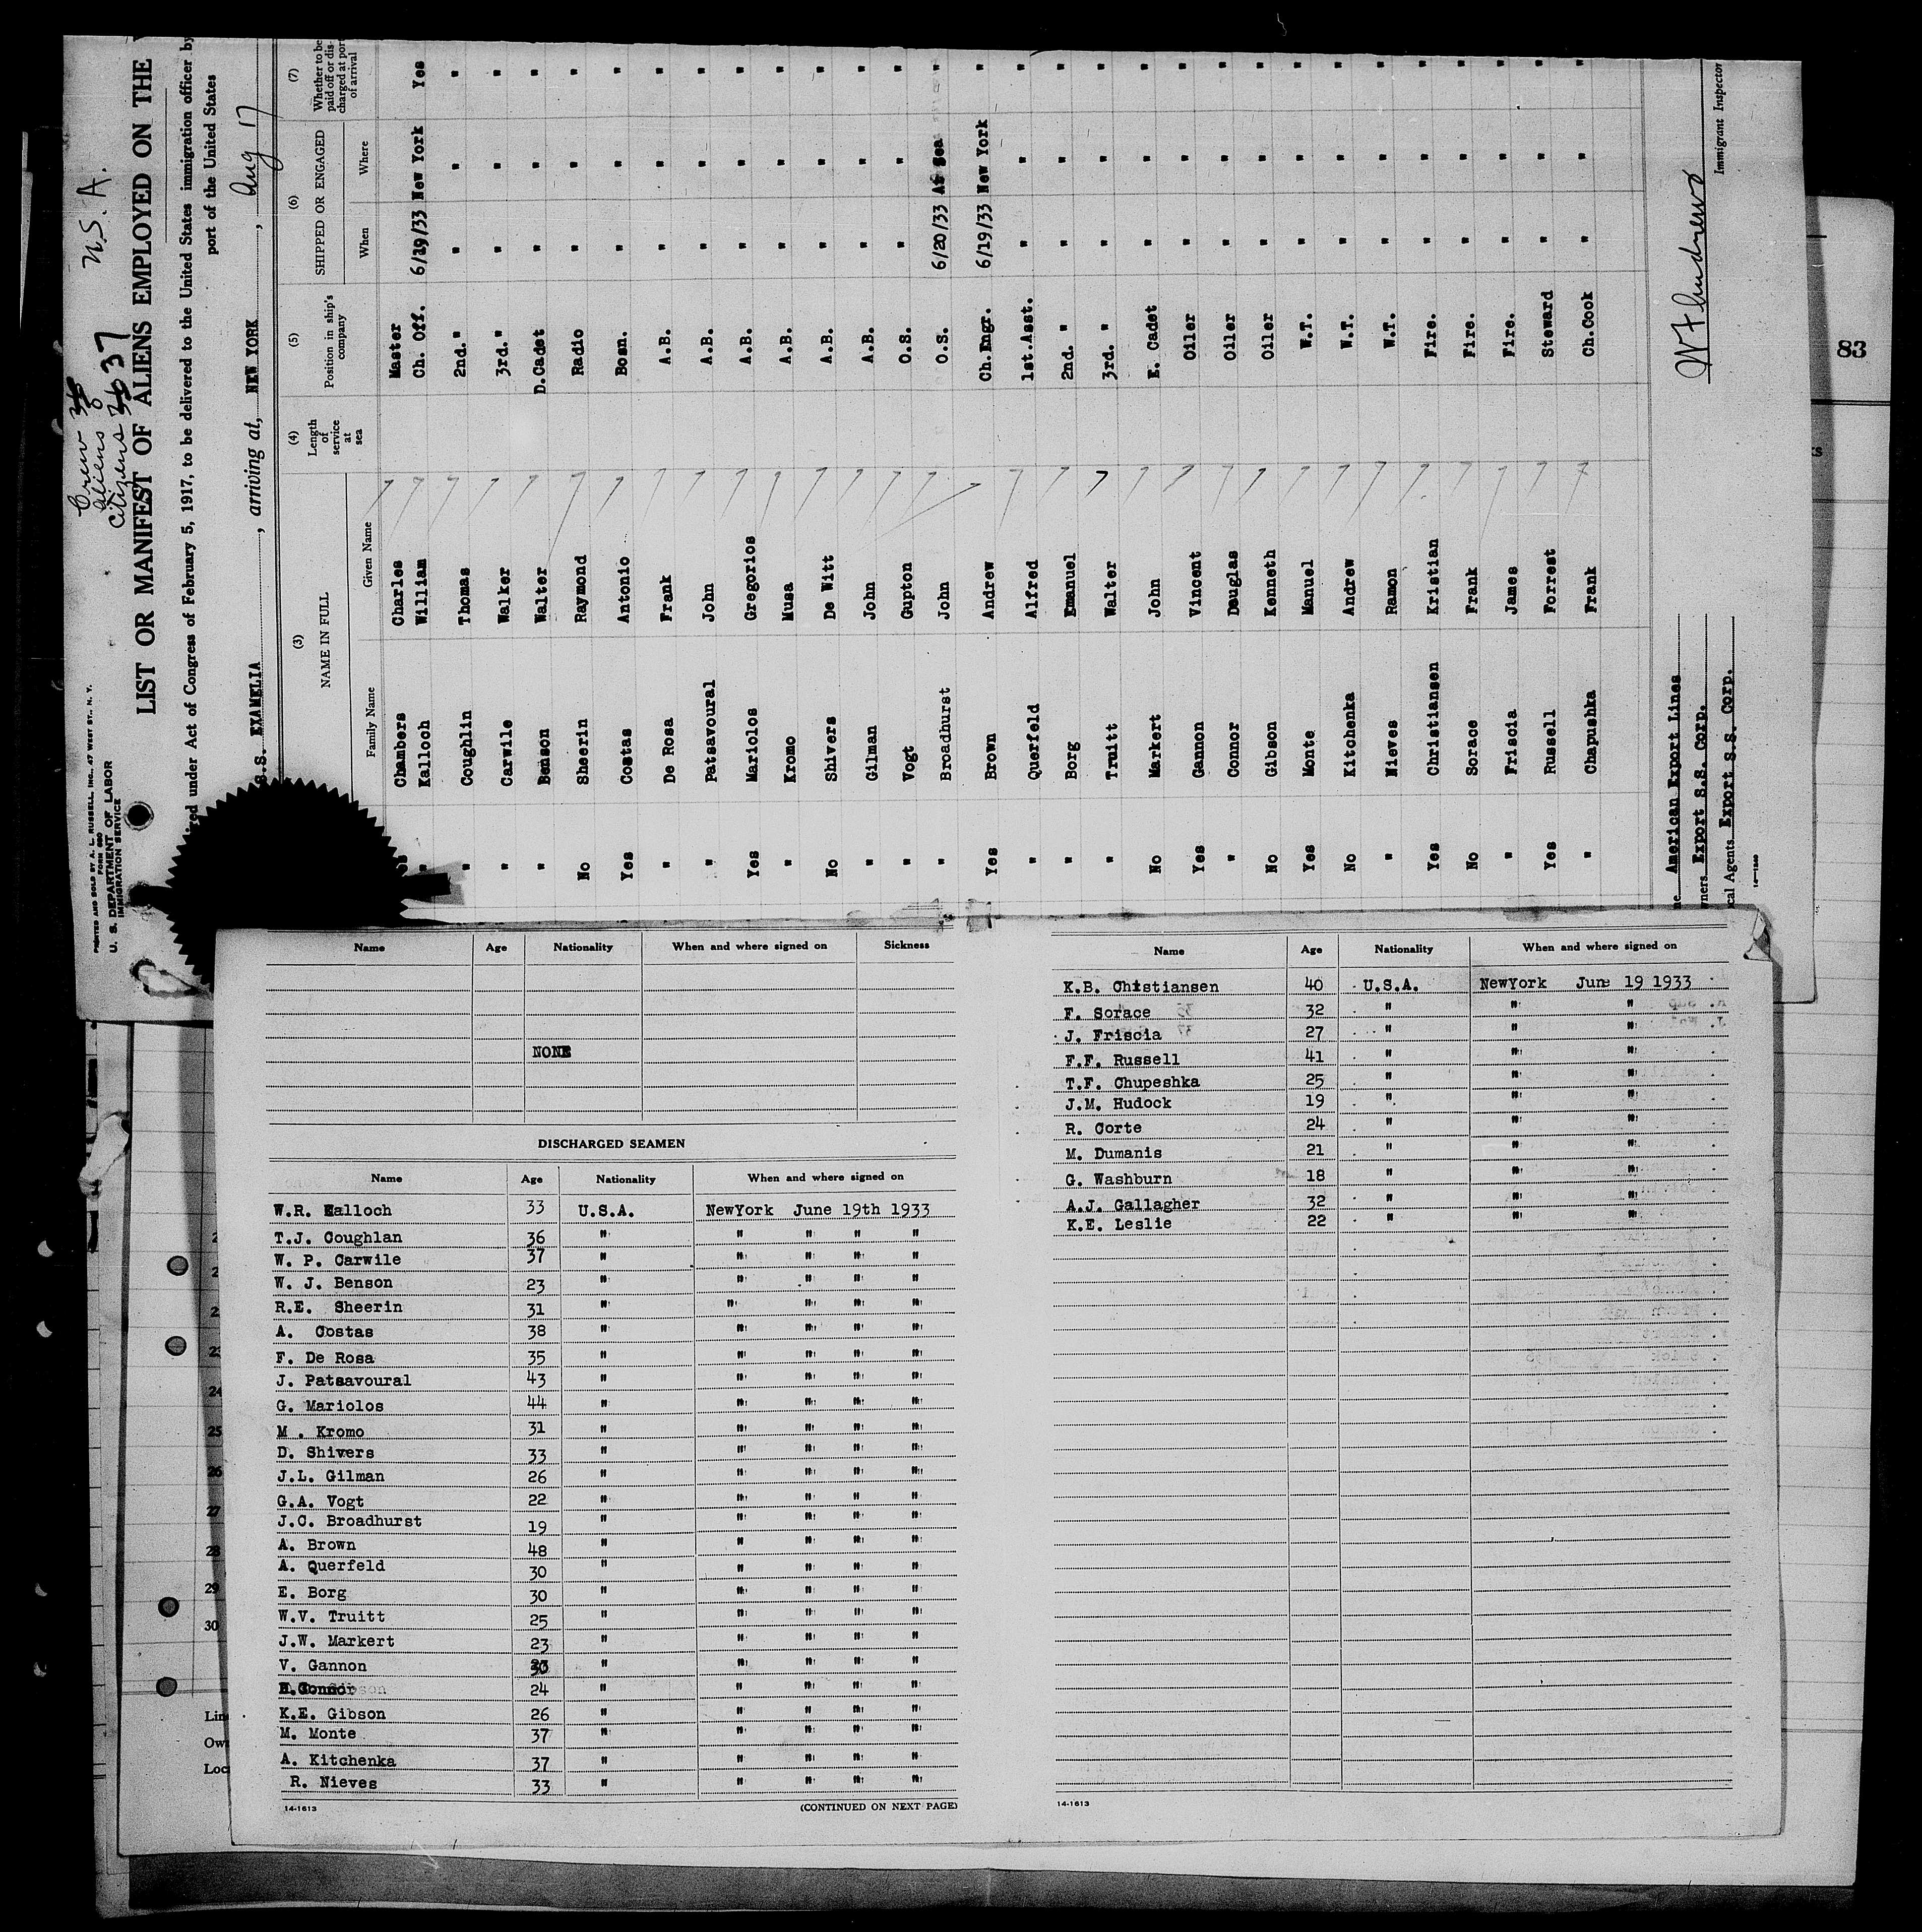 PRINTED AND SOLD BY A. L. RUSSELL, INC., 47 WEST ST., N. Y.
FORM 680
U. S. DEPARTMENT OF LABOR
IMMIGRATION SERVICE
Crew
Aliens
Citizens 37
U.S.A.
LIST OR MANIFEST OF ALIENS EMPLOYED ON THE
red under Act of Congress of February 5, 1917, to be delivered to the United States immigration officer by
port of the United States
S.S. EXAMELIA, arriving at, NEW YORK, Aug 17
(3) (4) (5) (6) (7)
NAME IN FULL
Family Name Given Name
Length of service at sea
Position in ship's company
SHIPPED OR ENGAGED
When Where
Whether to be paid off or discharged at port of arrival
Chambers Charles Master
" Kalloch William Ch. Off. 6/19/33 New York Yes
" Coughlin Thomas 2nd." " " "
" Carwile Walker 3rd." " " "
" Benson Walter D.Cadet " " "
No Sheerin Raymond Radio " " "
Yes Costas Antonio Bosn. " " "
" De Rosa Frank A.B. " " "
" Patsavoural John A.B. " " "
Yes Mariolos Gregorios A.B. " " "
" Kromo Musa A.B. " " "
No Shivers De Witt A.B. " " "
" Gilman John A.B. " " "
" Vogt Gupton O.S. " " "
" Broadhurst John O.S. 6/20/33 At Sea "
Yes Brown Andrew Ch.Engr. 6/19/33 New York "
" Querfeld Alfred 1st.Asst. " " "
" Borg Emanuel 2nd. " " " "
" Truitt Walter 3rd. " " " "
No Markert John E. Cadet " " "
Yes Gannon Vincent Oiler " " "
" Connor Douglas Oiler " " "
No Gibson Kenneth Oiler " " "
Yes Monte Manuel W.T. " " "
No Kitchenka Andrew W.T. " " "
" Nieves Ramon W.T. " " "
Yes Christiansen Kristian Fire. " " "
No Sorace Frank Fire. " " "
" Friscia James Fire. " " "
Yes Russell Forrest Steward " " "
" Chapushka Frank Ch.Cook " " "
ne American Export Lines
wners Export S.S. Corp.
cal Agents Export S.S. Corp.
Immigrant Inspector
14—1240
83
Name Age Nationality When and where signed on Sickness
NONE
DISCHARGED SEAMEN
Name Age Nationality When and where signed on
W.R. Kalloch 33 U.S.A. NewYork June 19th 1933
T.J. Coughlan 36 " " " " "
W. P. Carwile 37 " " " " "
W. J. Benson 23 " " " " "
R.E. Sheerin 31 " " " " "
A. Costas 38 " " " " "
F. De Rosa 35 " " " " "
J. Patsavoural 43 " " " " "
G. Mariolos 44 " " " " "
M . Kromo 31 " " " " "
D. Shivers 33 " " " " "
J.L. Gilman 26 " " " " "
G.A. Vogt 22 " " " " "
J.C. Broadhurst 19 " " " " "
A. Brown 48 " " " " "
A. Querfeld 30 " " " " "
E. Borg 30 " " " " "
W.V. Truitt 25 " " " " "
J.W. Markert 23 " " " " "
V. Gannon " " " " "
Connor 24 " " " " "
K.E. Gibson 26 " " " " "
M. Monte 37 " " " " "
A. Kitchenka 37 " " " " "
R. Nieves 33 " " " " "
14-1613 (CONTINUED ON NEXT PAGE)
Name Age Nationality When and where signed on
K.B. Chistiansen 40 U.S.A. NewYork June 19 1933
F. Sorace 32 " " "
J. Friscia 27 " " "
F.F. Russell 41 " " "
T.F. Chupeshka 25 " " "
J.M. Hudock 19 " " "
R. Corte 24 " " "
M. Dumanis 21 " " "
G. Washburn 18 " " "
A.J. Gallagher 32 " " "
K.E. Leslie 22 " " "
14-1613
23
24
25
26
27
28
29
30
Lin
Ow
Loc